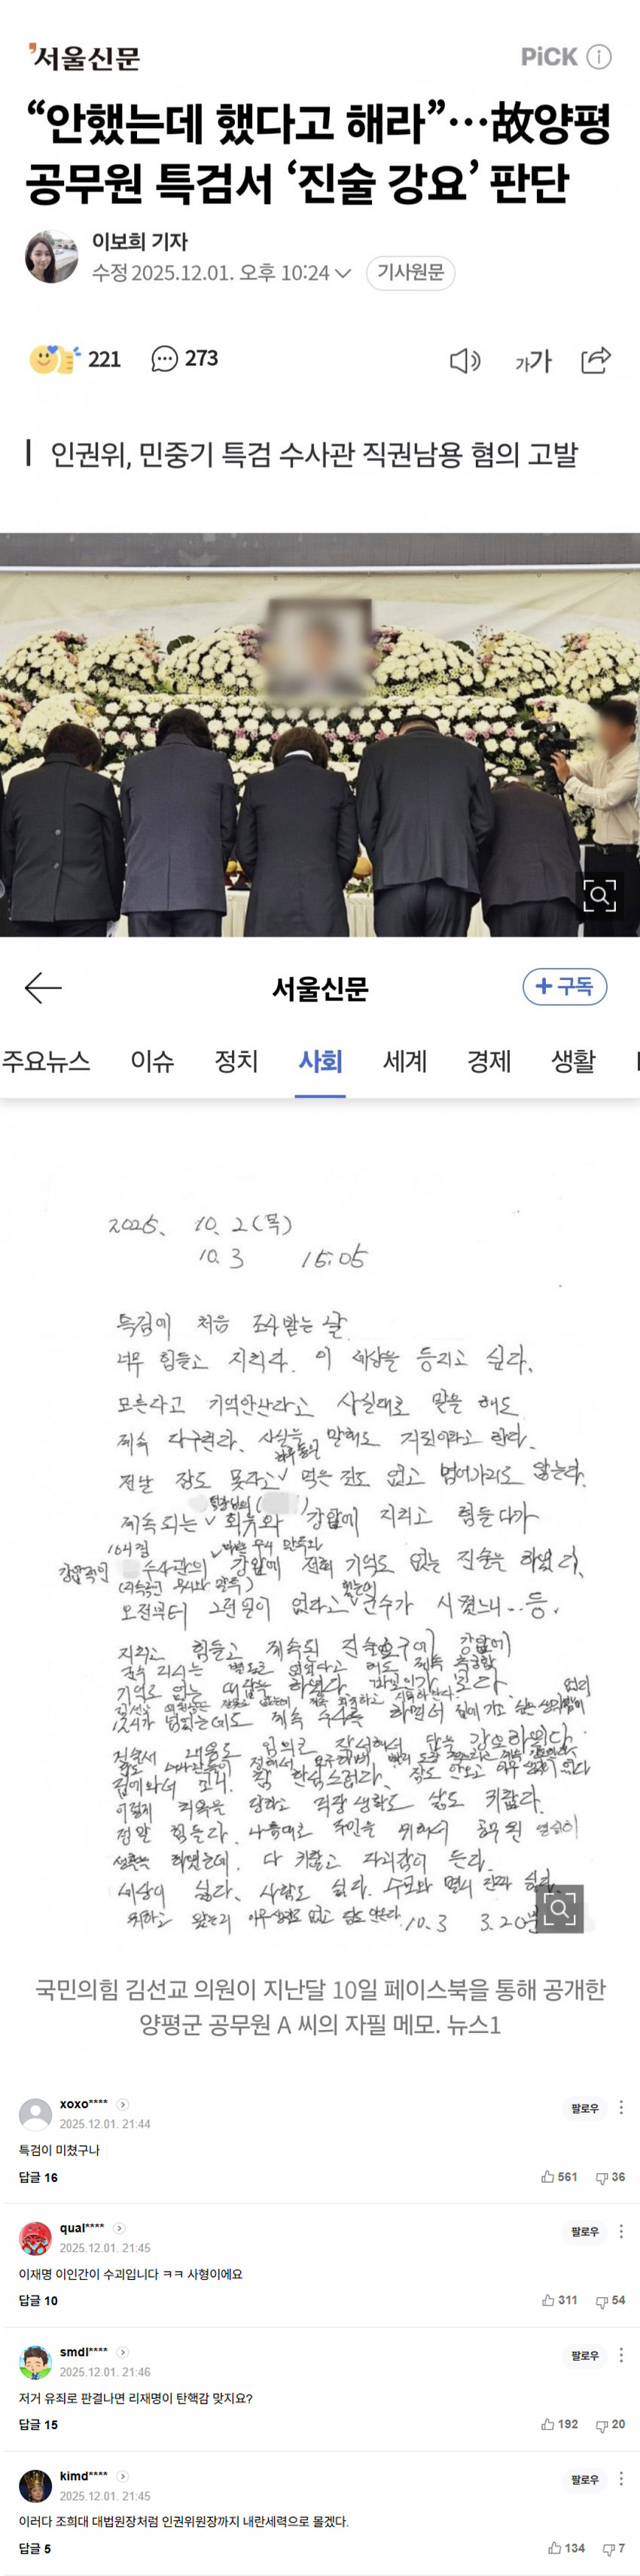 서울신문
PiCK
“안했는데 했다고 해라”…故양평
공무원 특검서 ‘진술 강요’ 판단
이보희 기자
수정 2025.12.01. 오후 10:24
기사원문
221
273
가가
인권위, 민중기 특검 수사관 직권남용 혐의 고발
서울신문
+ 구독
주요뉴스 이슈 정치 사회 세계 경제 생활
2025. 10. 2 (목)
10. 3 15:05
특검에 처음 조사받는 날
너무 힘들고 지치다. 이 세상을 등지고 싶다.
모른다고 기억안난다고 사실대로 말을 해도
계속 다구친다. 사실을 말해도 거짓이라고 한다.
전날 잠도 못자고 먹은 것도 없고
계속되는 회유와 강압에 지치고 힘들다
수사관의 강압에 전혀 기억도 없는 진술을 하였다.
지치고 힘들고 계속된 진술요구에 강압에
기억도 없는 대답을 하였다. 바보인가 보다.
집에와서 보니 참 한심스럽다. 잠도 안오고 아무 생각이 없다
이렇게 치욕을 당하고 직장생활도 삶도 귀찮다.
정말 힘들다. 나름대로 주민을 위해서 공무원 열심히
다 귀찮고 자괴감이 든다.
세상이 싫다. 사람도 싫다. 수모와 멸시 진짜 싫다.
10.3 3.20
국민의힘 김선교 의원이 지난달 10일 페이스북을 통해 공개한
양평군 공무원 A 씨의 자필 메모. 뉴스1
xoxo****
팔로우
2025.12.01. 21:44
특검이 미쳤구나
답글 16
561 36
qual****
팔로우
2025.12.01. 21:45
이재명 이인간이 수괴입니다 ㅋㅋ 사형이에요
답글 10
311 54
smdl****
팔로우
2025.12.01. 21:46
저거 유죄로 판결나면 리재명이 탄핵감 맞지요?
답글 15
192 20
kimd****
팔로우
2025.12.01. 21:45
이러다 조희대 대법원장처럼 인권위원장까지 내란세력으로 몰겠다.
답글 5
134 7